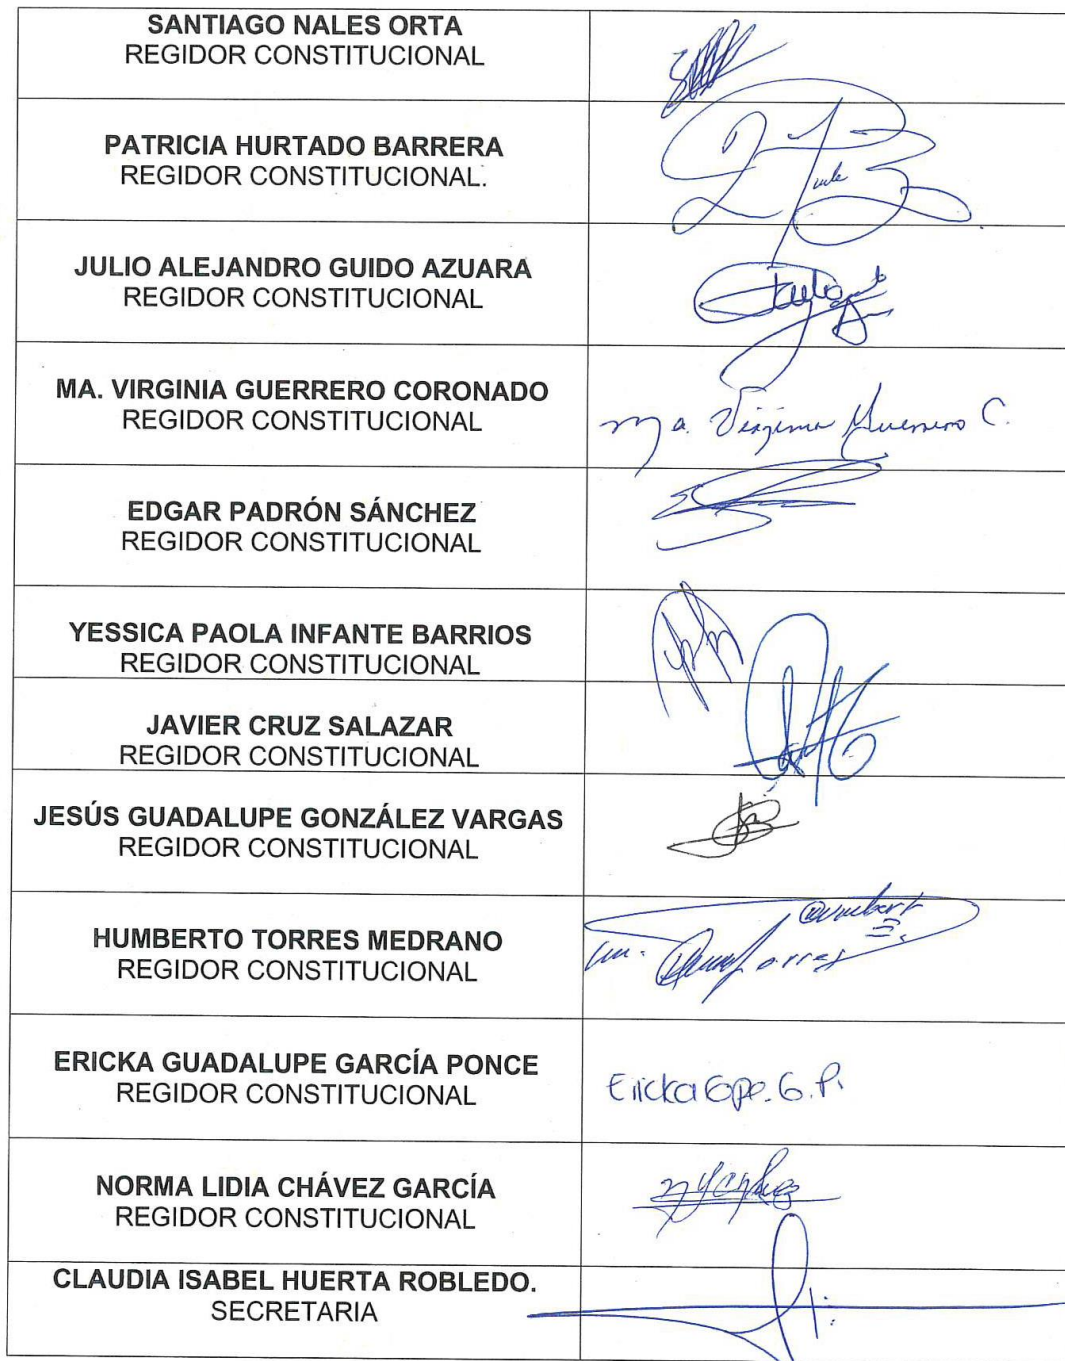 SANTIAGO NALES ORTA
REGIDOR CONSTITUCIONAL
PATRICIA HURTADO BARRERA
REGIDOR CONSTITUCIONAL.
JULIO ALEJANDRO GUIDO AZUARA
REGIDOR CONSTITUCIONAL
MA. VIRGINIA GUERRERO CORONADO
REGIDOR CONSTITUCIONAL
Ma. Virginia Guerrero C.
EDGAR PADRÓN SÁNCHEZ
REGIDOR CONSTITUCIONAL
YESSICA PAOLA INFANTE BARRIOS
REGIDOR CONSTITUCIONAL
JAVIER CRUZ SALAZAR
REGIDOR CONSTITUCIONAL
JESÚS GUADALUPE GONZÁLEZ VARGAS
REGIDOR CONSTITUCIONAL
HUMBERTO TORRES MEDRANO
REGIDOR CONSTITUCIONAL
ERICKA GUADALUPE GARCÍA PONCE
REGIDOR CONSTITUCIONAL
Ericka Gpe. G. P.
NORMA LIDIA CHÁVEZ GARCÍA
REGIDOR CONSTITUCIONAL
CLAUDIA ISABEL HUERTA ROBLEDO.
SECRETARIA